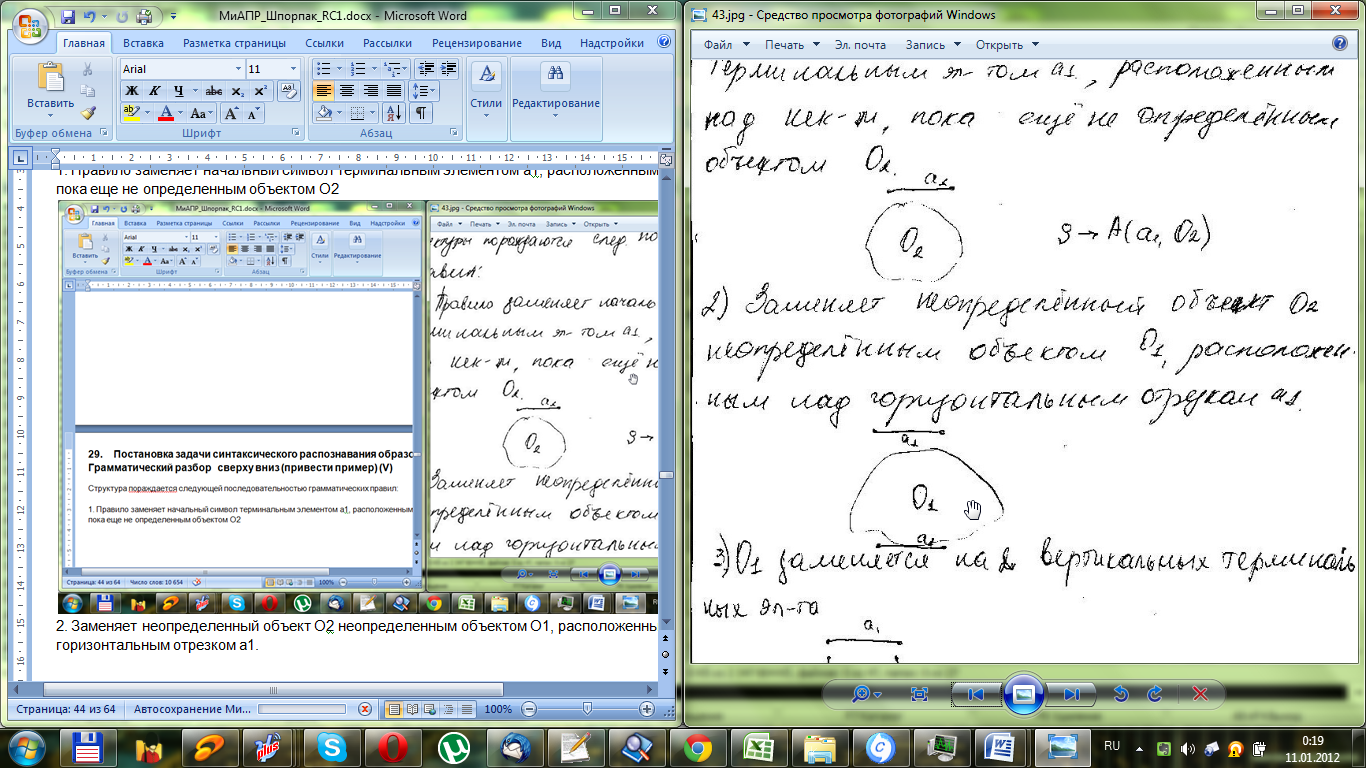 МиАПР_Шпорпак_RC1.docx - Microsoft Word
Главная Вставка Разметка страницы Ссылки Рассылки Рецензирование Вид Надстройки
Arial 11
Вставить
Стили
Редактирование
Буфер обмена Шрифт Абзац
1. Правило заменяет начальный символ терминальным элементом а1, расположенным
пока еще не определенным объектом О2
МиАПР_Шпорпак_RC1.docx - Microsoft Word
Главная Вставка Разметка страницы Ссылки Рассылки Рецензирование Вид Надстройки
Arial 11
Вставить
Стили
Редактирование
Буфер обмена Шрифт Абзац
29. Постановка задачи синтаксического распознавания образо
Грамматический разбор сверху вниз (привести пример) (V)
Структура пораждается следующей последовательностью грамматических правил:
1. Правило заменяет начальный символ терминальным элементом а1, расположенным
пока еще не определенным объектом О2
Страница: 44 из 64 Число слов: 10 654 100%
43.jpg - Средство просмотра фотографий Windows
Файл Печать Эл. почта Запись Открыть
пораждаются след. по
Правило заменяет началь
эл-том a1,
нек-м, пока ещё н
O2.
a1
O2
S→
Заменяет
объектом
над горизонтальны
2. Заменяет неопределенный объект О2 неопределенным объектом О1, расположенны
горизонтальным отрезком а1.
Страница: 44 из 64 Автосохранение Ми... 100%
43.jpg - Средство просмотра фотографий Windows
Файл Печать Эл. почта Запись Открыть
терминальным эл-том a1, расположенным
над нек-м, пока ещё не определённым
объектом O2.
a1
O2
S→A(a1, O2)
2) Заменяет неопределённый объект O2
неопределённым объектом O1, расположен-
ным над горизонтальным отрезком a1.
a1
O1
a1
3) O1 заменяется на 2 вертикальных терминаль
ных эл-та
a1
RU
0:19
11.01.2012